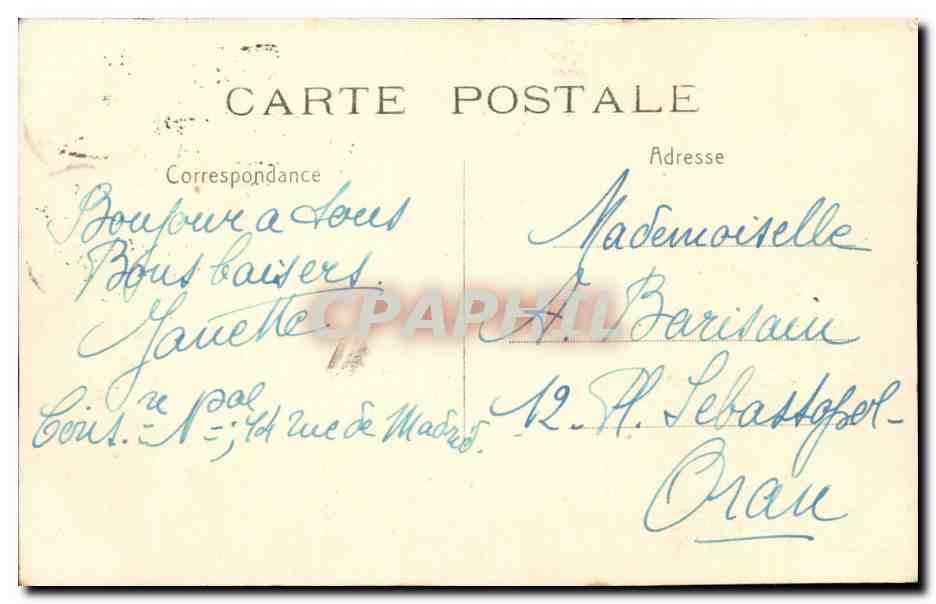 CARTE POSTALE
Correspondance
Bonjour a tous
Bons baisers.
Janette
Cons.re Npal; 14 rue de Madrid.
Adresse
Mademoiselle
A. Barisain
12 - Pl. Sebastopol -
Oran
CPAPHIL